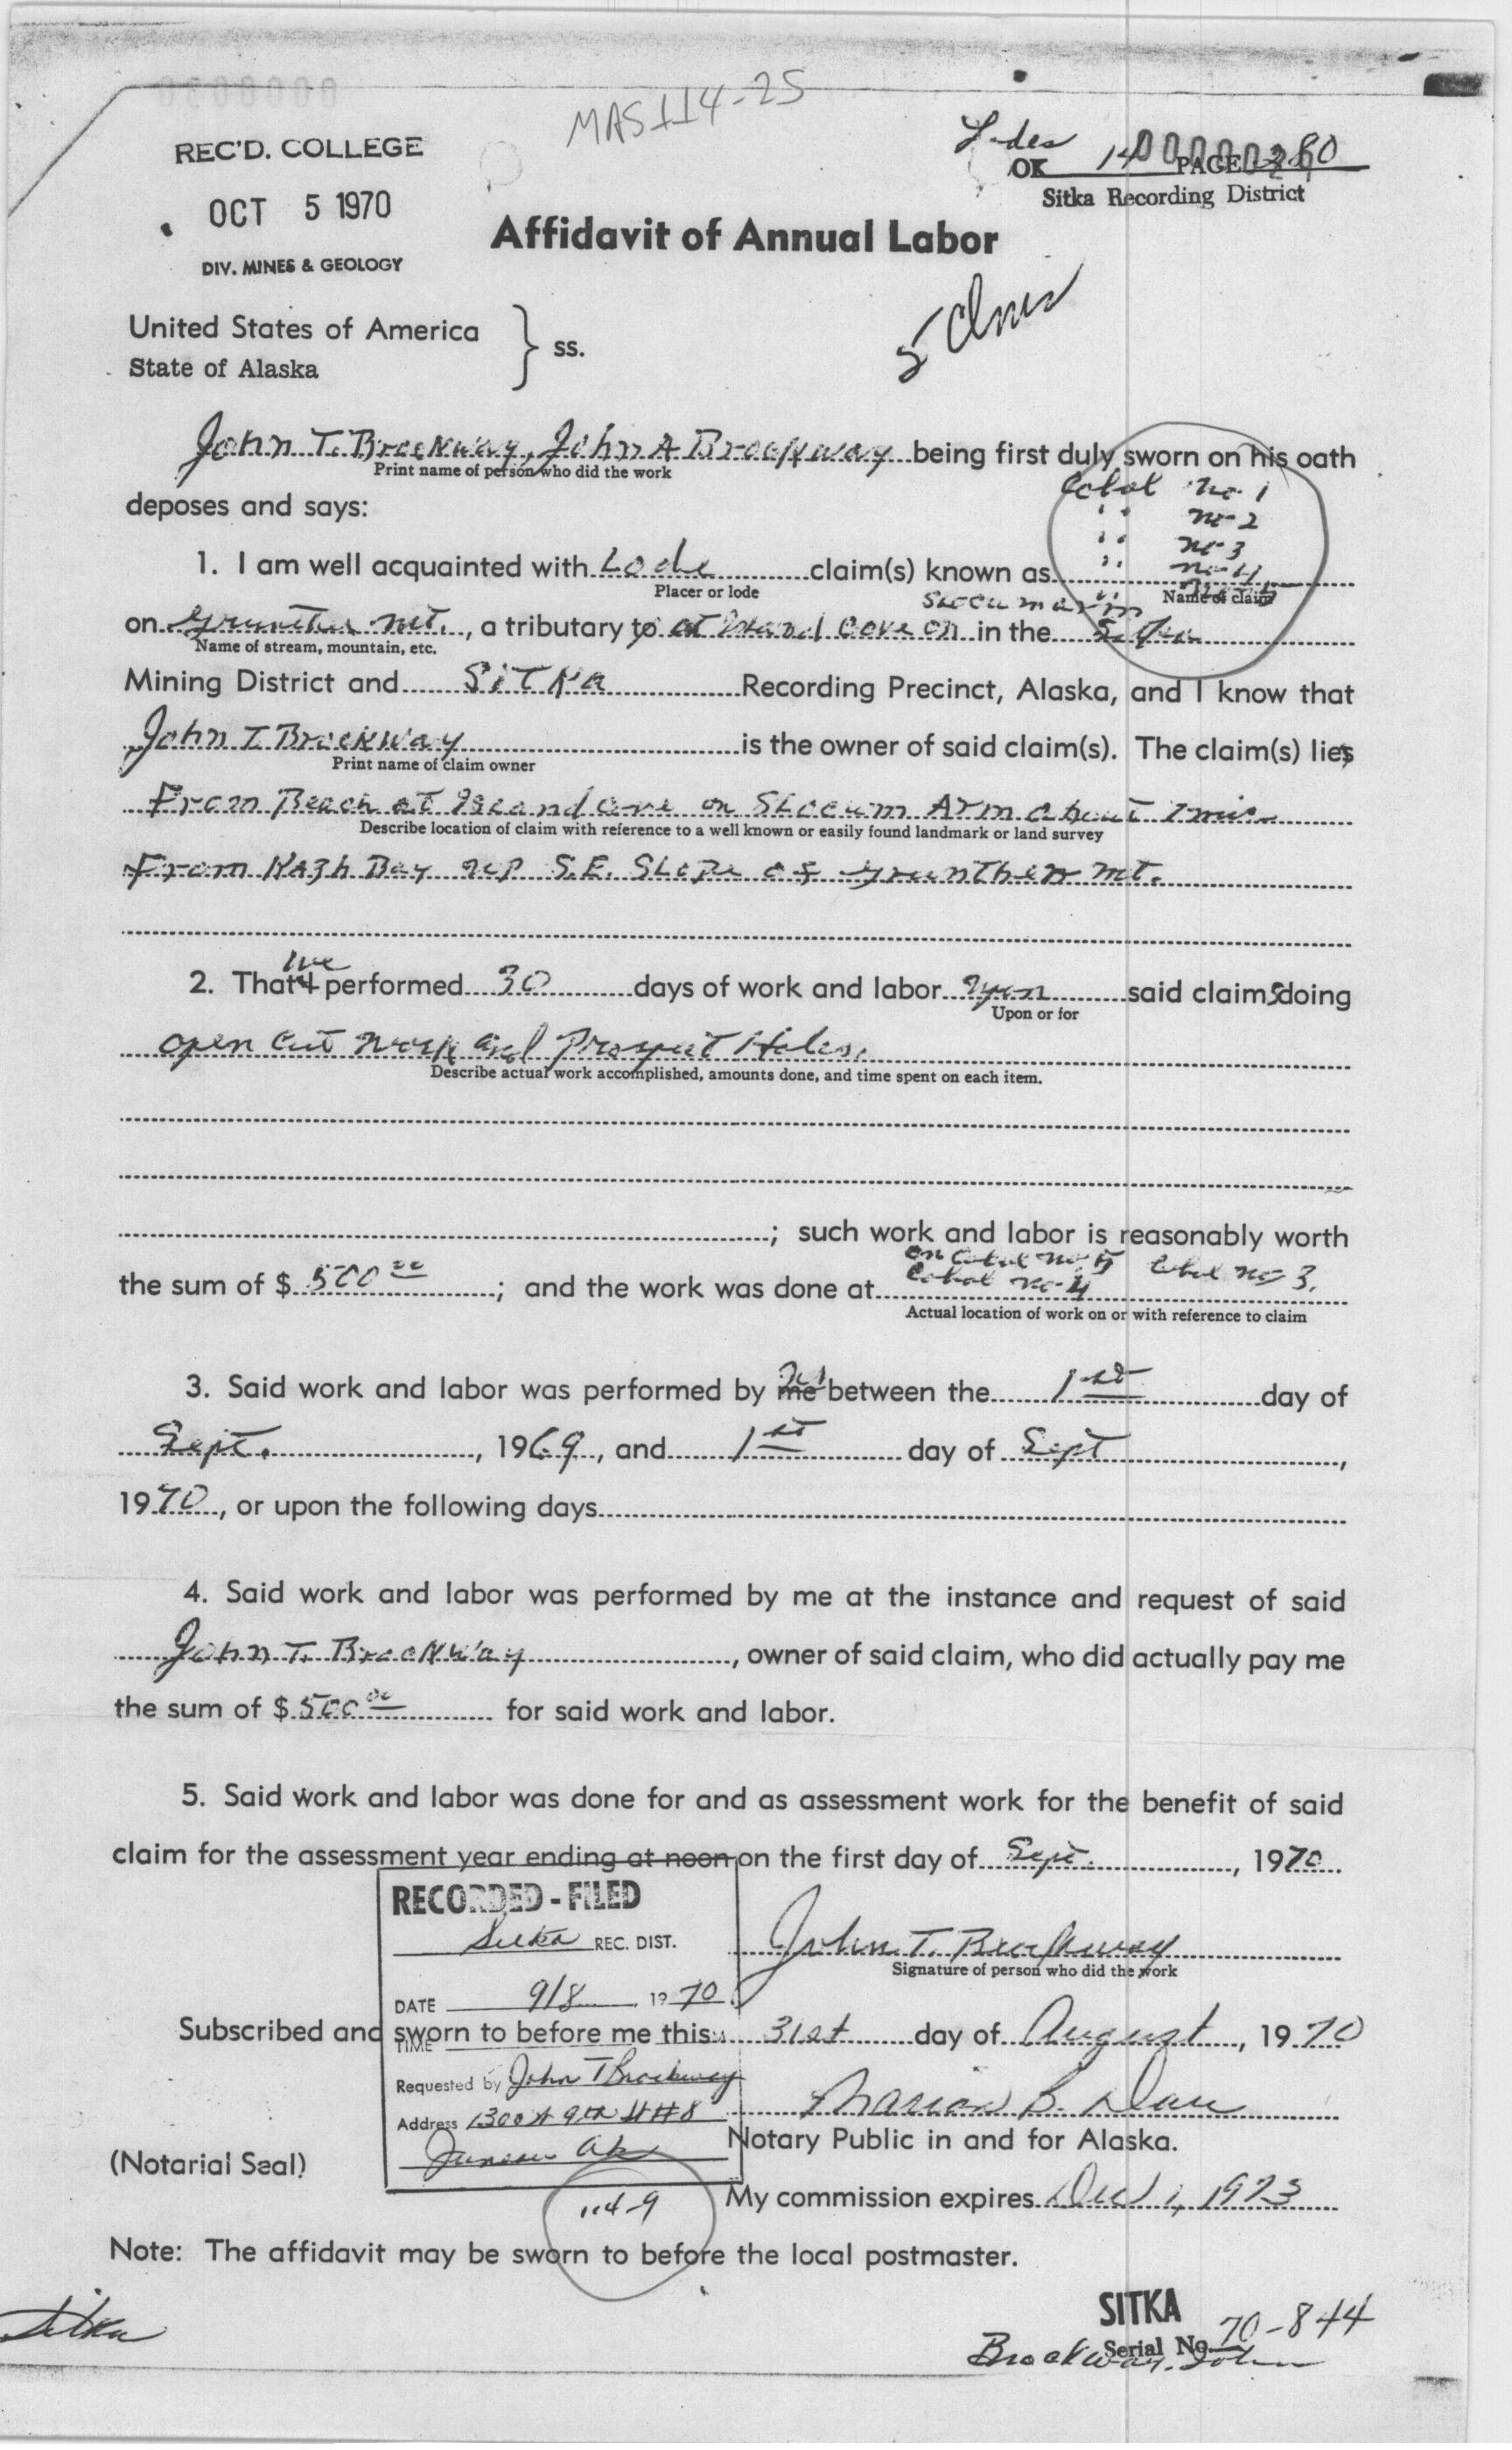 MAS 114-25
REC'D. COLLEGE
OCT 5 1970
DIV. MINES & GEOLOGY
OK 140 PAGE 280
Sitka Recording District
Affidavit of Annual Labor
5
United States of America
State of Alaska } ss.
John T. Brockway, John A Brockway being first duly sworn on his oath
Print name of person who did the work
deposes and says:
no. 1
" no-2
" no-3
1. I am well acquainted with Lode claim(s) known as " no-4
Placer or lode Name of claim
Slocum arm
on mt., a tributary to at Island Cove on in the Sitka
Name of stream, mountain, etc.
Mining District and SiTKa Recording Precinct, Alaska, and I know that
John T. Brockway is the owner of said claim(s). The claim(s) lies
Print name of claim owner
From Beach at Island Cove on Slocum Arm about 7 mi.
Describe location of claim with reference to a well known or easily found landmark or land survey
From Bay up S.E. Slope of mt.
we
2. That I performed 30 days of work and labor upon said claims doing
Upon or for
open cut work and Prospect Holes.
Describe actual work accomplished, amounts done, and time spent on each item.
; such work and labor is reasonably worth
on no. 5 no 3.
the sum of $ 500 00; and the work was done at no-4
Actual location of work on or with reference to claim
3. Said work and labor was performed by me us between the 1st day of
Sept., 1969, and 1st day of Sept,
1970, or upon the following days
4. Said work and labor was performed by me at the instance and request of said
John T. Brockway, owner of said claim, who did actually pay me
the sum of $ 500 00 for said work and labor.
5. Said work and labor was done for and as assessment work for the benefit of said
claim for the assessment year ending at noon on the first day of Sept., 1970
RECORDED - FILED
Sitka REC. DIST.
John T. Brockway
Signature of person who did the work
DATE 9/8 1970
Subscribed and sworn to before me this 31st day of August, 1970
TIME
Requested by John T Brockway
Marion B.
Address 1300 9th St #8
Notary Public in and for Alaska.
Juneau Ak
(Notarial Seal)
My commission expires Dec 1, 1973
114-9
Note: The affidavit may be sworn to before the local postmaster.
Sitka
SITKA
Serial No. 70-844
Brockway, John